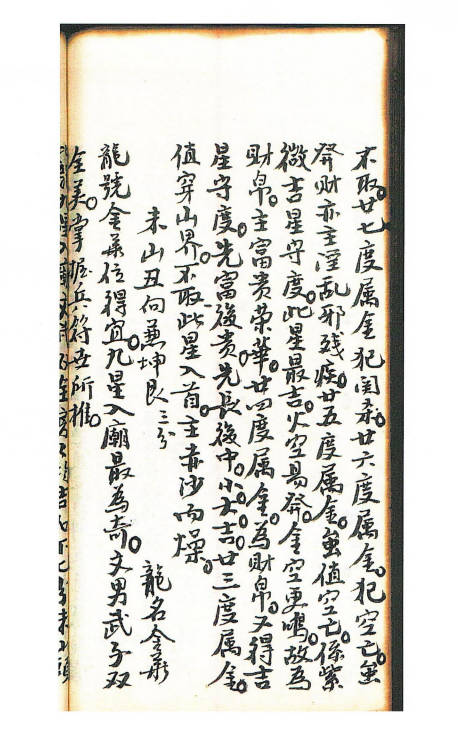 不取。廿七度属金。犯関杀。廿六度属金。犯空亡。虽
發財亦主淫乱邪残疾。廿五度属金。虽值空亡。係紫
微吉星守度。此星最吉。火空易發。金空更鳴。故為
財帛。主富貴荣華。廿四度属金。為財帛。又得吉
星守度。先富後貴。先長後中。小大吉。廿三度属金。
值穿山界。不取此星入首。主赤沙而燥。
未山丑向兼坤艮三分 龍名金華
龍號金華位得宜。九星入廟最為奇。文男武子双
全美。掌握兵符世所推。